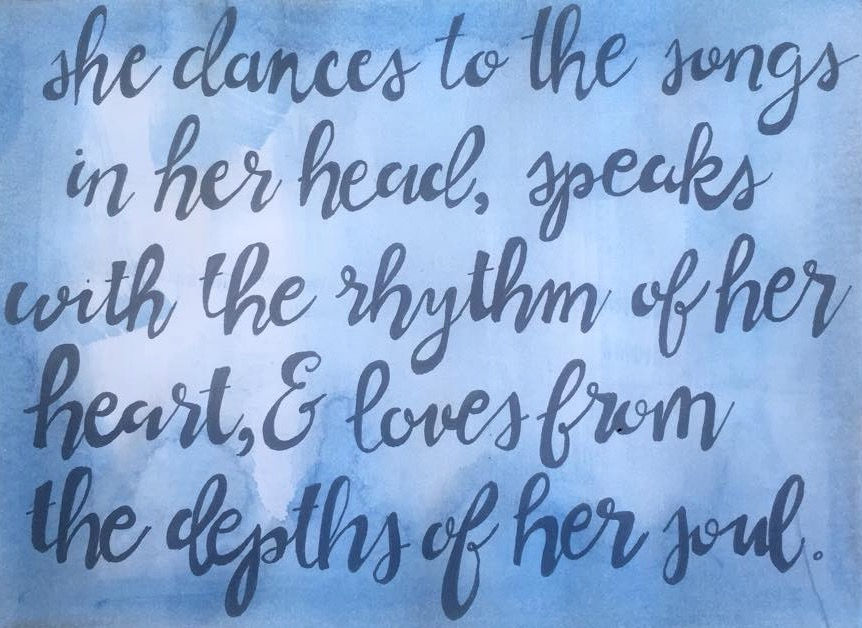 she dances to the songs
in her head, speaks
with the rhythm of her
heart, & loves from
the depths of her soul.